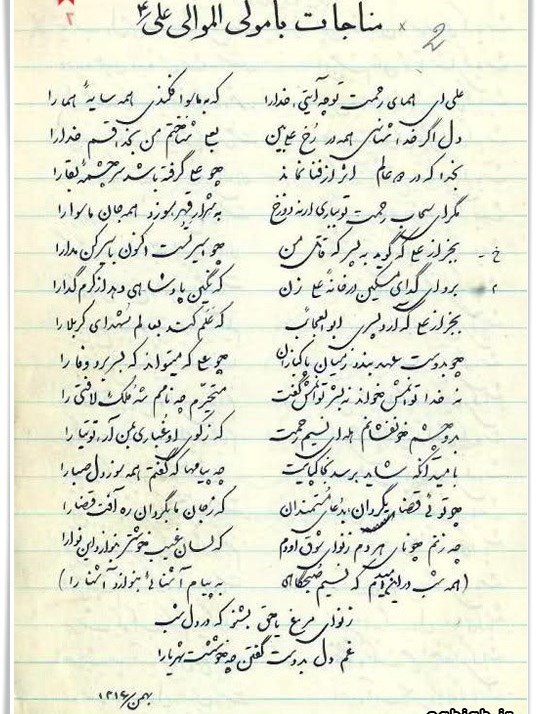 مناجات با مولی الموالی علی ع
۲
علی ای همای رحمت تو چه آیتی خدا را که به ماسوا فکندی همه سایهٔ هما را
دل اگر خداشناسی همه در رخ علی بین به علی شناختم من بخدا قسم خدا را
بخدا که در دو عالم اثر از فنا نماند چو علی گرفته باشد سر چشمهٔ بقا را
مگر ای سحاب رحمت تو بباری ار نه دوزخ به شرار قهر سوزد همه جان ماسوا را
بجز از علی که گوید به پسر که قاتل من چو اسیر تست اکنون با اسیر کن مدارا
برو ای گدای مسکین در خانهٔ علی زن که نگین پادشاهی دهد از کرم گدا را
بجز از علی که آرد پسری ابوالعجائب که علم کند بعالم شهدای کربلا را
چو بدوست عهد بندد ز میان پاکبازان چو علی که میتواند که بسر برد وفا را
نه خدا توانمش خواند نه بشر توانمش گفت متحیرم چه نامم شه ملک لافتی را
بدو چشم خونفشانم هله ای نسیم رحمت که ز کوی او غباری بمن آر توتیا را
بامید آنکه شاید برسد بخاک پایت چه پیامها که گفتم همه سوز دل صبا را
چو توئی قضا بگردان بدعای مستمندان که ز جان ما بگردان ره آفت قضا را
چه زنم چو نای هر دم ز نوای شوق او دم که لسان غیب خوشتر بنوازد این نوا را
(همه شب در این امیدم که نسیم صبحگاهی به پیام آشنائی بنوازد آشنا را)
ز نوای مرغ یا حق بشنو که در دل شب
غم دل بدوست گفتن چه خوشست شهریارا
بهمن ۱۳۱۶